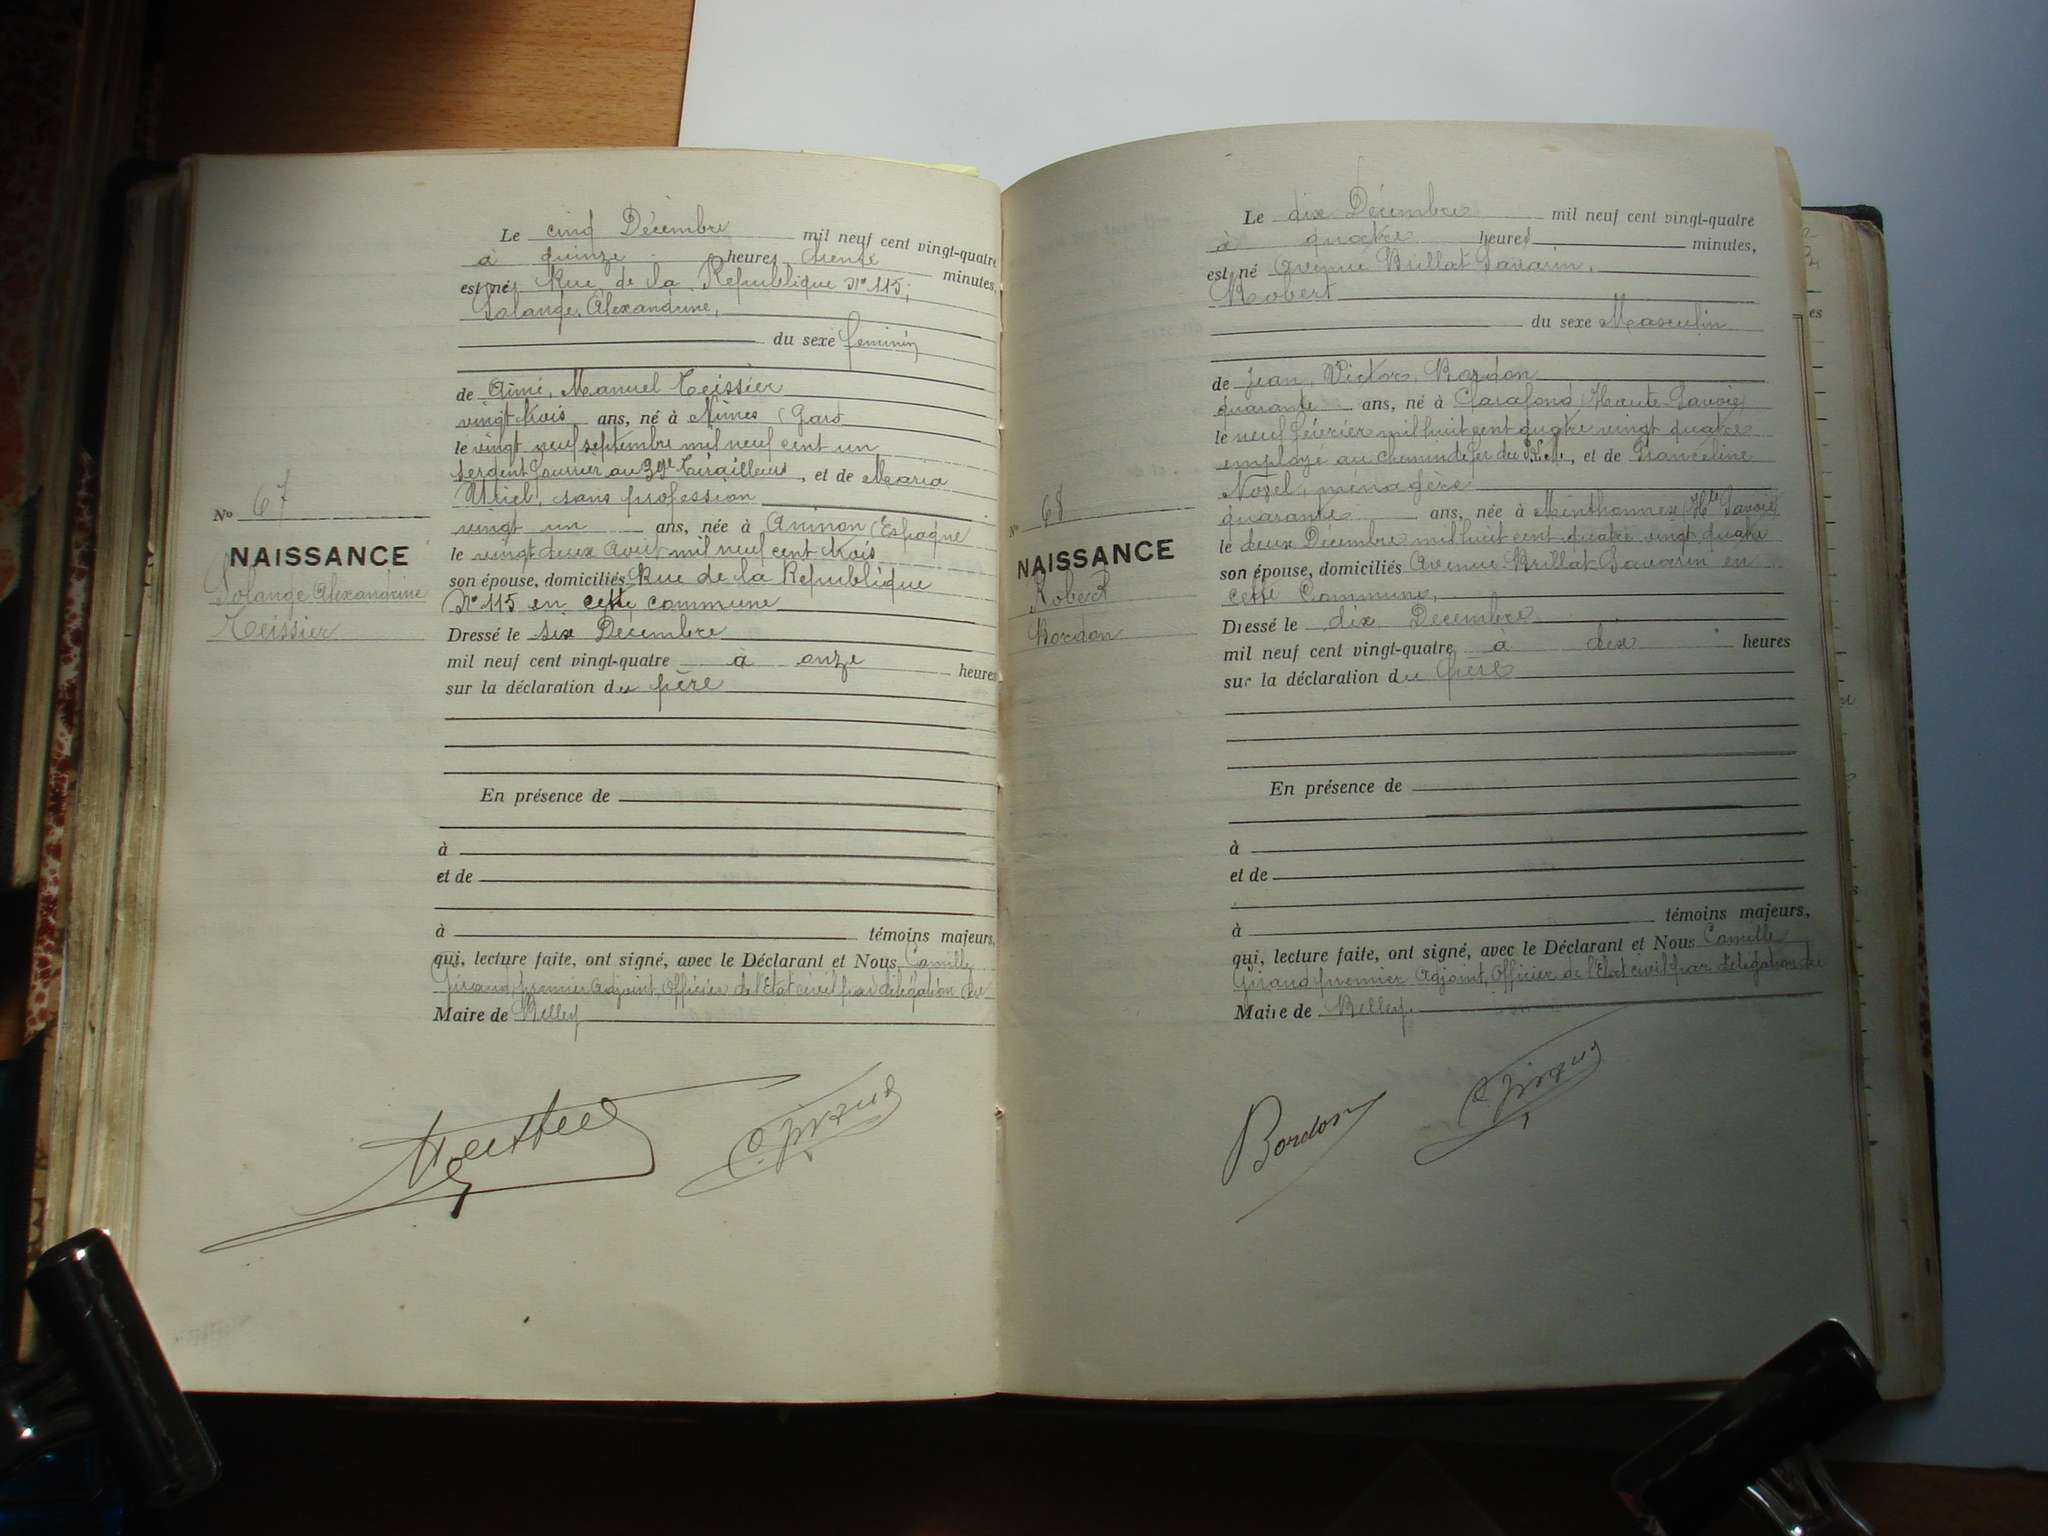 Le cinq Décembre mil neuf cent vingt-quatre
à quinze heures trente minutes,
est né Rue de la Republique N° 115,
Solange, Alexandrine,
du sexe feminin
de Aimé, Manuel Teissier
vingt trois ans, né à Nîmes (Gard
le vingt neuf septembre mil neuf cent un
sergent fourrier au 39e Tirailleurs, et de Maria
Uriel, sans profession
vingt un ans, née à Aninon (Espagne
le vingt deux Avril mil neuf cent trois
son épouse, domiciliés Rue de la Republique
N° 115 en cette commune
Dressé le six Décembre
mil neuf cent vingt-quatre à onze heures
sur la déclaration du père
En présence de
à
et de
à témoins majeurs,
qui, lecture faite, ont signé, avec le Déclarant et Nous Camille
Giraud, premier Adjoint, Officier de l'Etat civil par délégation du
Maire de Belley
No 67
NAISSANCE
Solange Alexandrine
Teissier
C. Giraud
Le dix Décembre mil neuf cent vingt-quatre
à quatre heures minutes,
est né Avenue Brillat-Savarin,
Robert
du sexe Masculin
de Jean, Victor, Bordon
quarante ans, né à Clarafond (Haute-Savoie)
le neuf février mil huit cent quatre vingt quatre
employé au chemin de fer du P.L.M., et de Franceline
Nozel, ménagère
quarante ans, née à Minthonnex (Hte Savoie)
le deux Décembre mil huit cent quatre vingt quatre
son épouse, domiciliés Avenue Brillat-Savarin en
cette Commune,
Dressé le dix Decembre
mil neuf cent vingt-quatre à dix heures
sur la déclaration du père
En présence de
à
et de
à témoins majeurs,
qui, lecture faite, ont signé, avec le Déclarant et Nous Camille
Giraud premier Adjoint, Officier de l'Etat civil par délégation du
Maire de Belley.
No 68
NAISSANCE
Robert
Bordon
Bordon
C. Giraud